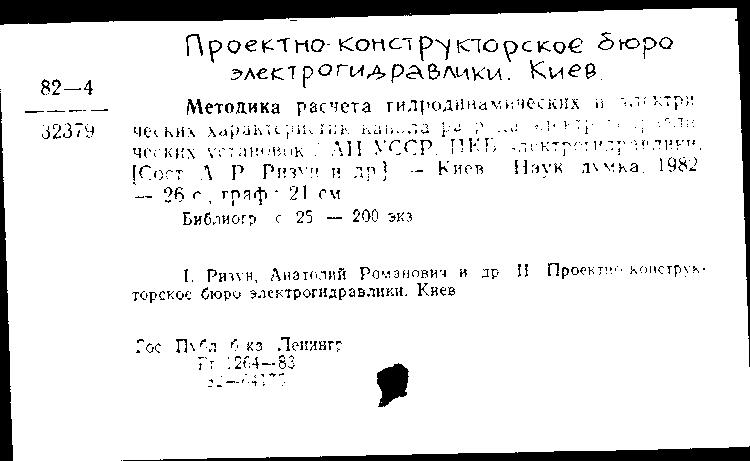 Проектно-конструкторское бюро
электрогидравлики. Киев.
82—4
32379
Методика расчета гидродинамических и электри
ческих характеристик канала
ческих установок / АН УССР, ПКБ электрогидравлики.
[Сост А. Р. Ризун и др]. — Киев Наук думка, 1982
— 26 с, граф: 21 см
Библиогр с 25 — 200 экз
I. Ризун, Анатолий Романович и др II Проектно-конструк-
торское бюро электрогидравлики. Киев
Гос Публ б-ка Ленингр
1264—83